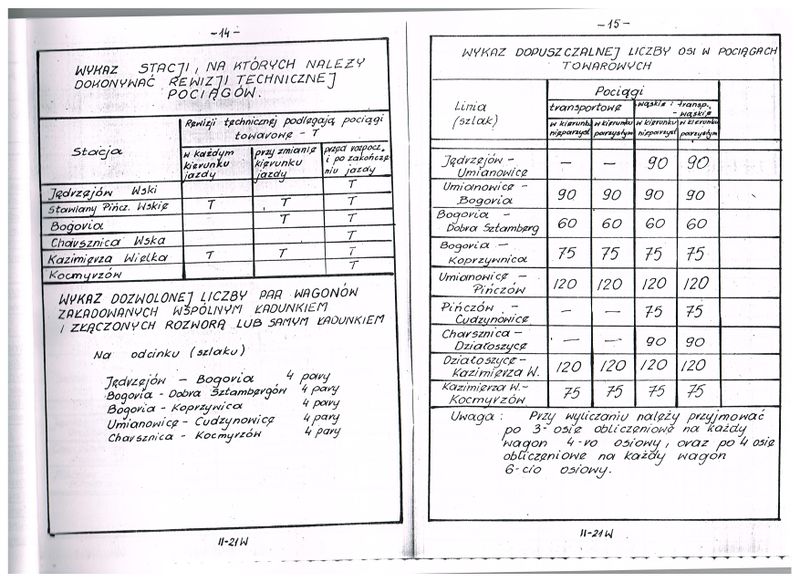 -14-
WYKAZ STACJI, NA KTÓRYCH NALEŻY
DOKONYWAĆ REWIZJI TECHNICZNEJ
POCIĄGÓW.
Stacja
Rewizji technicznej podlegają pociągi
towarowe - T
w każdym kierunku jazdy
przy zmianie kierunku jazdy
przed rozpocz. i po zakończe- niu jazdy
Jędrzejów Wski T
Stawiany Pińcz. Wskie T T T
Bogoria T T
Charsznica Wska T
Kazimierza Wielka T T T
Kocmyrzów T
WYKAZ DOZWOLONEJ LICZBY PAR WAGONÓW
ZAŁADOWANYCH WSPÓLNYM ŁADUNKIEM
I ZŁĄCZONYCH ROZWORĄ LUB SAMYM ŁADUNKIEM
Na odcinku (szlaku)
Jędrzejów - Bogoria 4 pary
Bogoria - Dobra Sztambergów 4 pary
Bogoria - Koprzywica 4 pary
Umianowice - Cudzynowice 4 pary
Charsznica - Kocmyrzów 4 pary
II-21W
-15-
WYKAZ DOPUSZCZALNEJ LICZBY OSI W POCIĄGACH
TOWAROWYCH
Linia
(szlak)
Pociągi
transportowe
wąskie i transp. - wąskie
w kierunku nieparzyst.
w kierunku parzystym
w kierunku nieparzyst
w kierunku parzystym
Jędrzejów -
Umianowice — — 90 90
Umianowice -
Bogoria 90 90 90 90
Bogoria -
Dobra Sztamberg 60 60 60 60
Bogoria -
Koprzywnica 75 75 75 75
Umianowice -
Pińczów 120 120 120 120
Pińczów -
Cudzynowice - - 75 75
Charsznica -
Działoszyce — — 90 90
Działoszyce -
Kazimierza W. 120 120 120 120
Kazimierza W.-
Kocmyrzów 75 75 75 75
Uwaga : Przy wyliczaniu należy przyjmować
po 3- osie obliczeniowe na każdy
wagon 4-ro osiowy, oraz po 4 osie
obliczeniowe na każdy wagon
6-cio osiowy.
II-21W